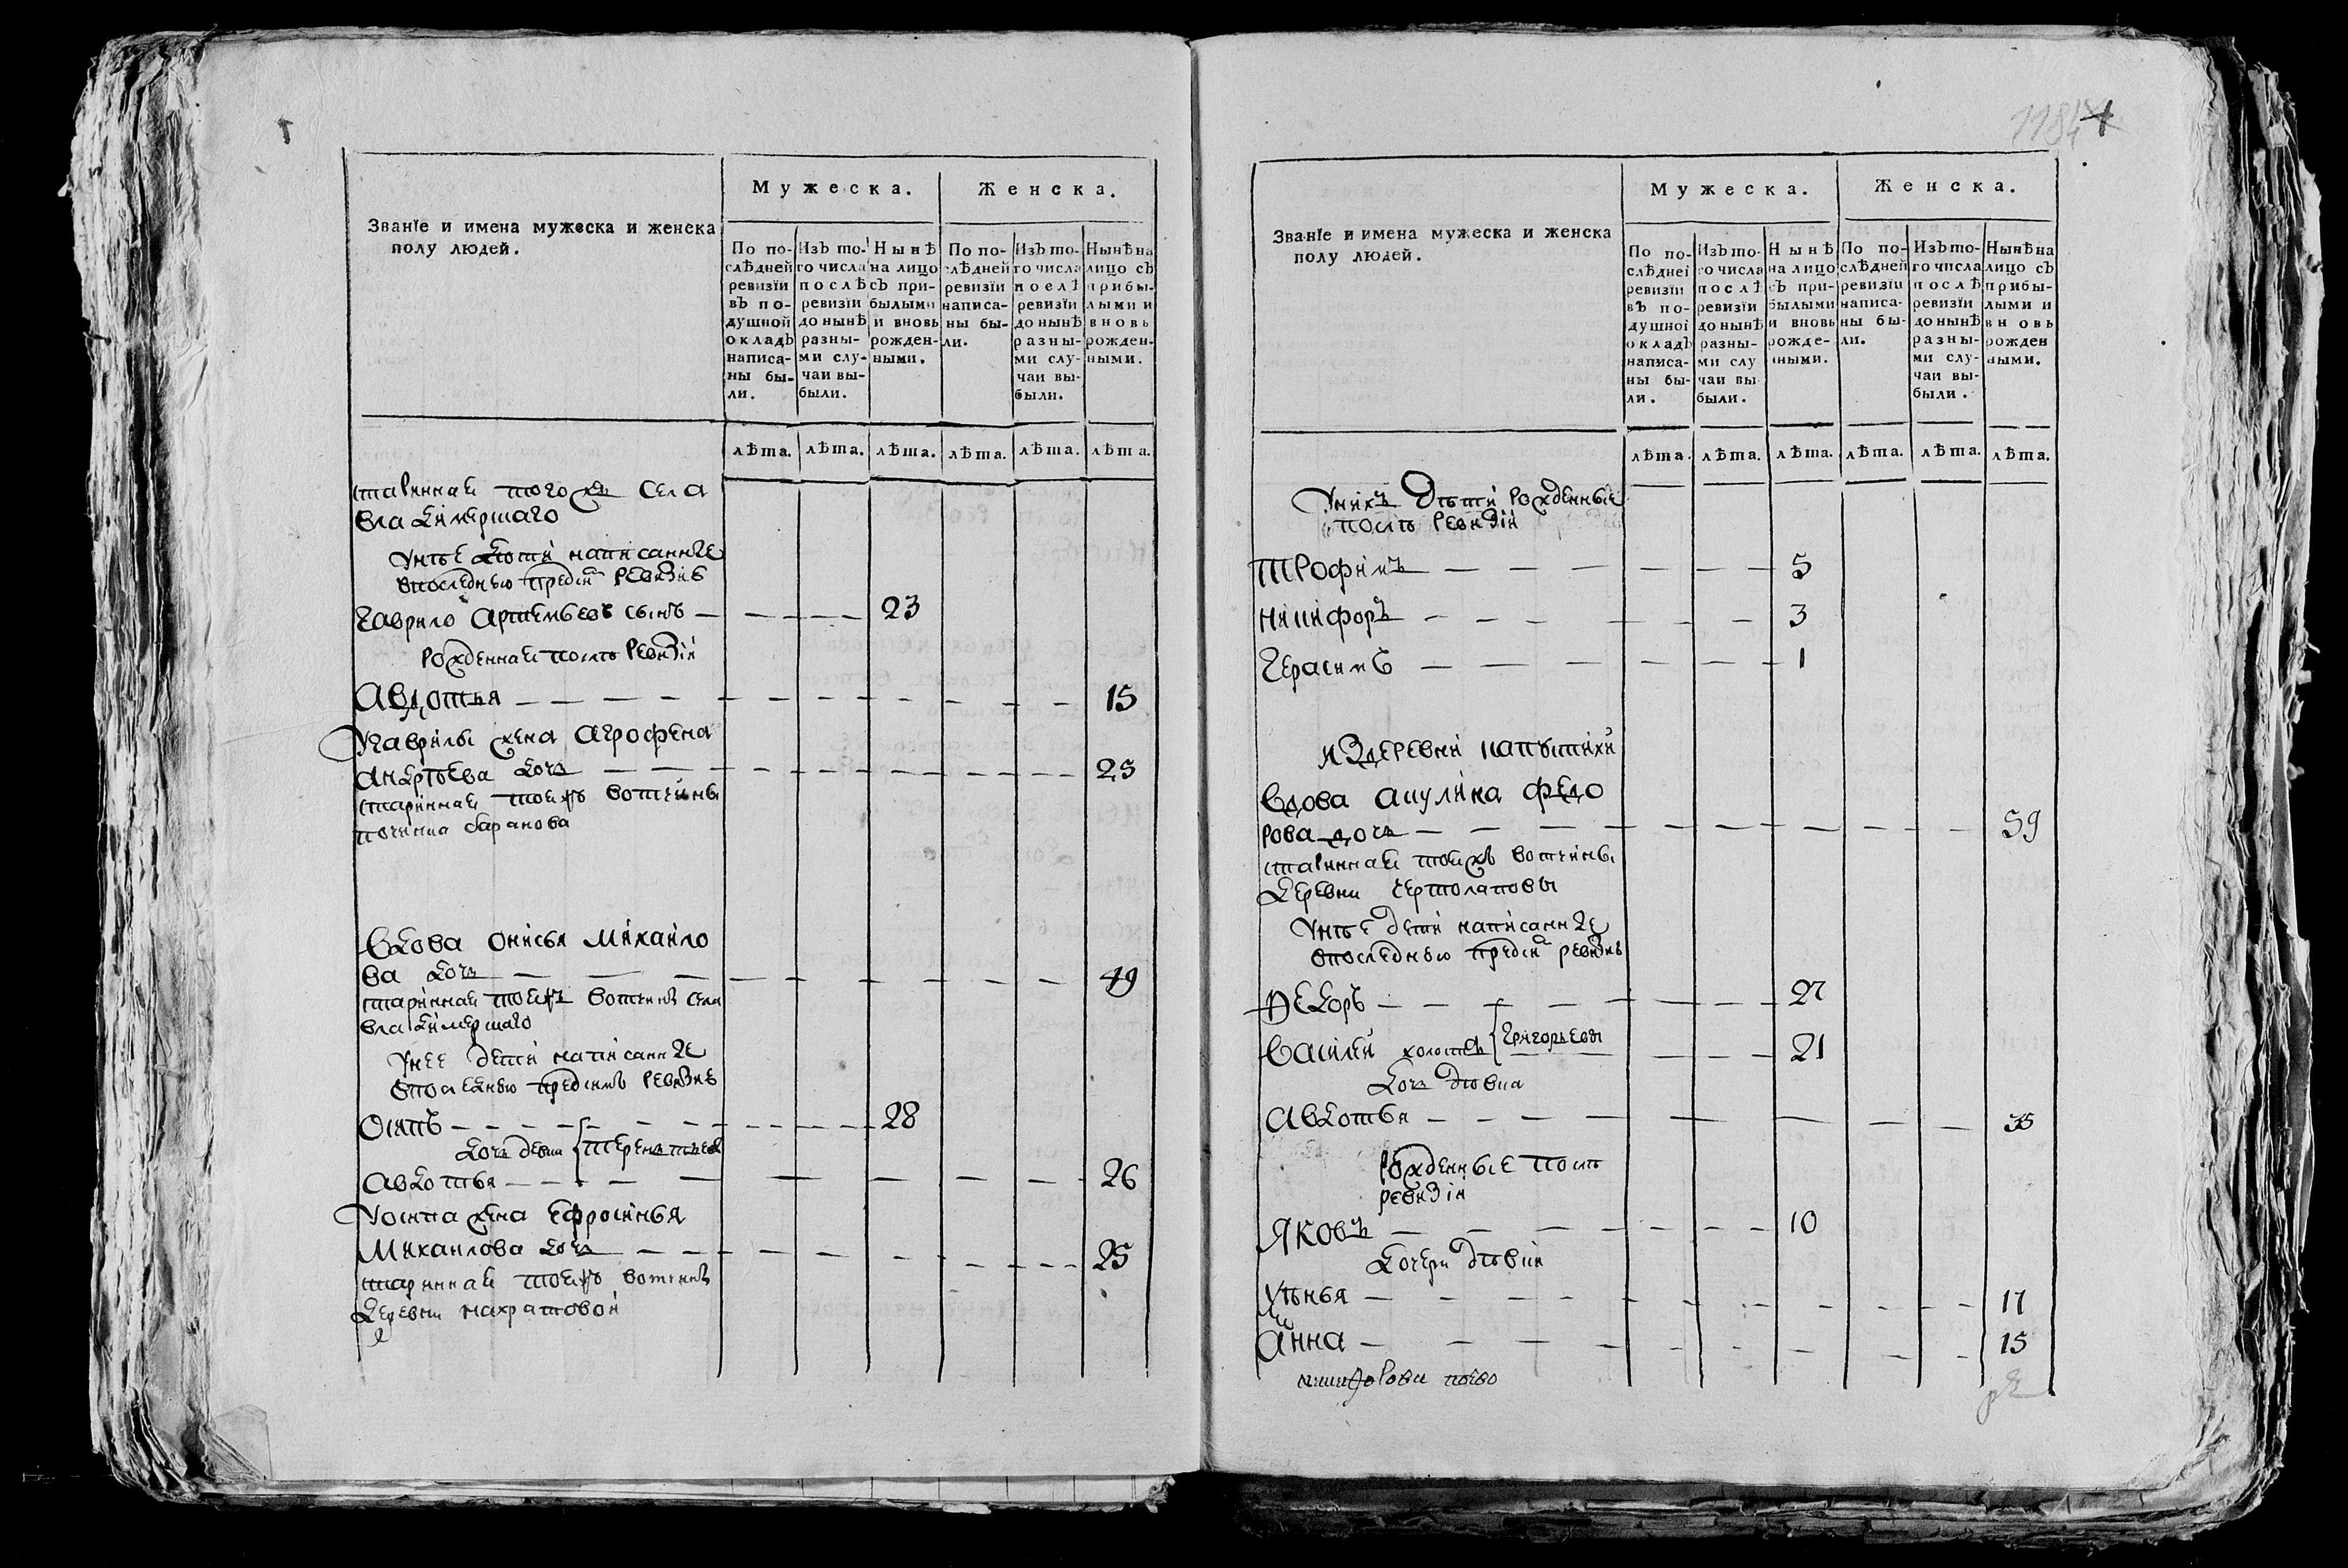 1184
Мужеска. Женска.
Званїе и имена мужеска и женска
полу людей.
По последней ревизїи въ подушной окладъ написаны были.
Изъ того числа послѣ ревизїи до нынѣ разными случаи выбыли.
Нынѣ на лицо съ прибылыми и вновь рожденными.
По последней ревизїи написаны были.
Изъ того числа послѣ ревизїи до нынѣ разными случаи выбыли.
Нынѣ на лицо съ прибылыми и вновь рожденными.
лѣта. лѣта. лѣта. лѣта. лѣта. лѣта.
старинная того жъ села
владимерцаго
унѣе дети написанные
впоследнею предсимъ ревизиѣ
Гаврило Артемьевъ сынъ 23
рожденная послѣ ревизіи
Авдотья 15
У Гаврилы жена Агрофена
Андрѣева дочь 25
старинная тоижъ вотчины
починка баранова
Вдова Онисья Михаило
ва дочь 49
старинная тоижъ вотчинѣ села
владимерцаго
унее дети написанные
впоследнею предсимъ ревизиѣ
Осипъ 28
дочь девка Терентьев
Авдотья 26
У осипа жена Ефросинья
Михаилова дочь 25
старинная тоижъ вотчинѣ
деревни махратовой
Мужеска. Женска.
Званїе и имена мужеска и женска
полу людей.
По последней ревизїи въ подушной окладъ написаны были.
Изъ того числа послѣ ревизїи до нынѣ разными случаи выбыли.
Нынѣ на лицо съ прибылыми и вновь рожденными.
По последней ревизїи написаны были.
Изъ того числа послѣ ревизїи до нынѣ разными случаи выбыли.
Нынѣ на лицо съ прибылыми и вновь рожденными.
лѣта. лѣта. лѣта. лѣта. лѣта. лѣта.
Унихъ дѣти рожденные
послѣ ревизіи
Трофимъ 5
Никифоръ 3
Герасимъ 1
издеревни капустихи
Вдова Акулина Федо
рова дочь 59
старинная тоижъ вотчины
деревни чертолаповы
унѣе дети написанные
впоследнею предсимъ ревизиѣ
Федоръ 27
Василий холостъ Григорьевы 21
дочь дѣвка
Авдотья 35
Рожденные послѣ
ревизіи
Яковъ 10
дочери дѣвки
Ульнья 17
Анна 15